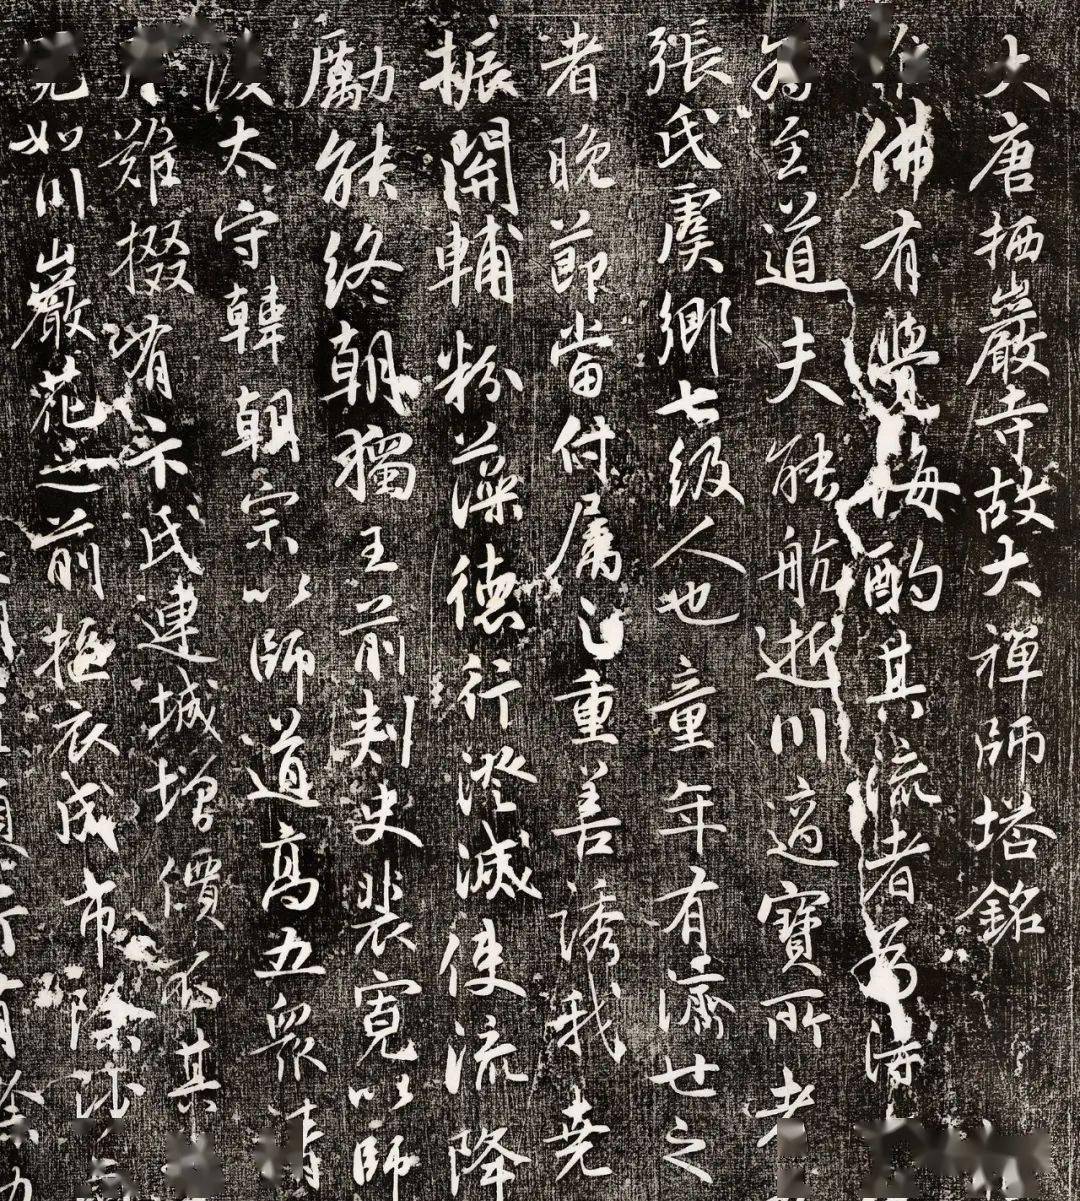 大唐栖巖寺故大禪師塔銘
佛有覺海酌其流者為得
為至道夫能航逝川適寶所者
張氏虞鄉七級人也童年有濟世之
者晚節當付属之重善誘我堯
振開輔粉藻德行澄滅使流降
勵能終朝獨王前刺史裴寬以師
太守韓朝宗以師道高五眾請
難掇有卞氏連城增價而其
如川巖花之前摳衣成市除